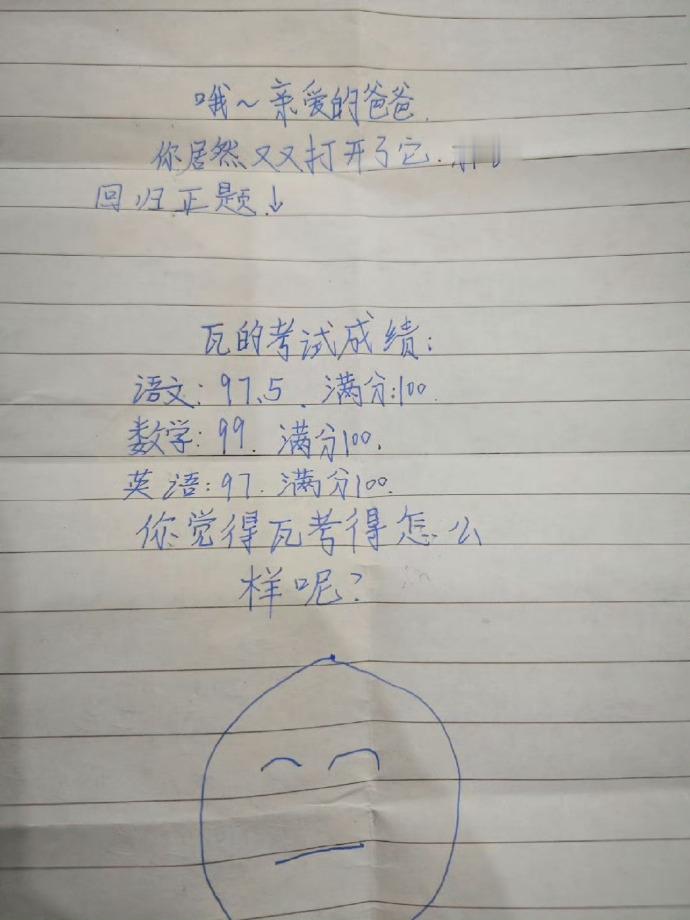 哦~亲爱的爸爸.
你居然又又打开了它.
回归正题↓
瓦的考试成绩:
语文:97.5.满分:100.
数学:99.满分100.
英语:97.满分100.
你觉得瓦考得怎么
样呢?